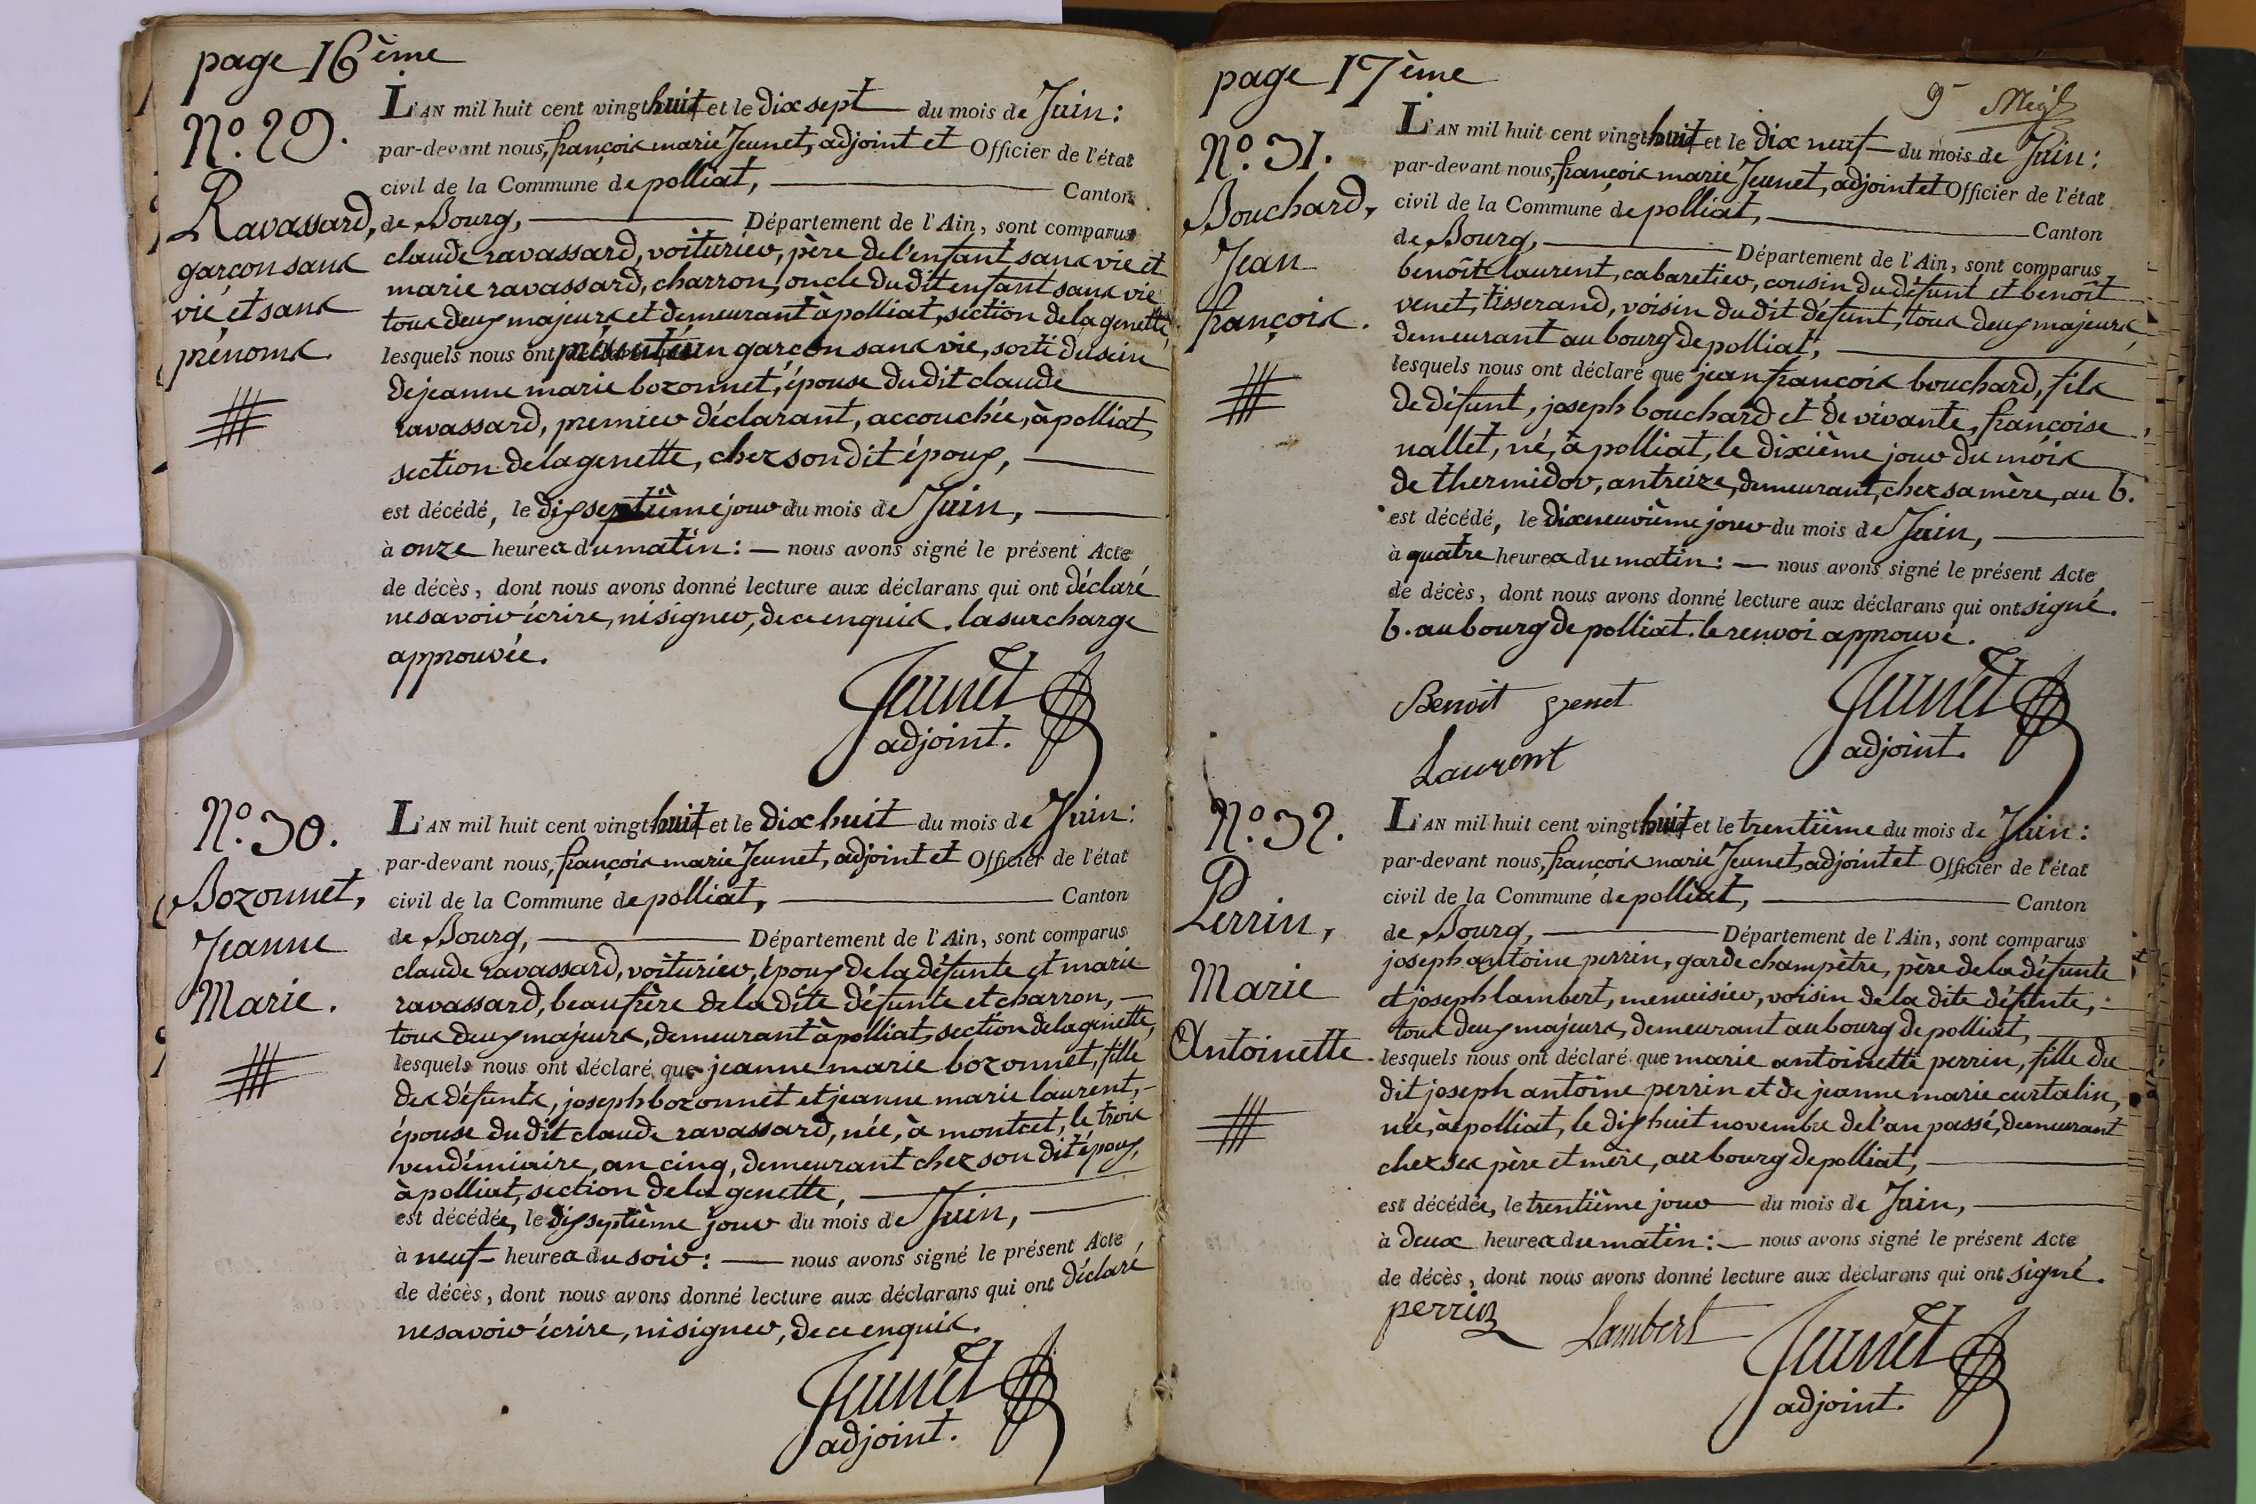 page 16ème
N.º 29.
Ravassard,
garçon sans
vie et sans
prénoms.
L'AN mil huit cent vingt huit et le dix sept du mois de Juin :
par-devant nous, françois marie Jeunet, adjoint et Officier de l'état
civil de la Commune de polliat, Canton
de Bourg, Département de l'Ain, sont comparus
claude ravassard, voiturier, père de l'enfant sans vie et
marie ravassard, charron, oncle du dit enfant sans vie
tous deux majeurs et demeurant à polliat, section de la genette,
lesquels nous ont présenté un garçon sans vie, sorti du sein
de jeanne marie bozonnet, épouse du dit claude
ravassard, premier déclarant, accouchée, à polliat,
section de la genette, chez son dit époux,
est décédé, le dix septième jour du mois de Juin,
à onze heures du matin : nous avons signé le présent Acte
de décès, dont nous avons donné lecture aux déclarans qui ont déclaré
ne savoir écrire, ni signer, de ce enquis. la surcharge
approuvée.
Jeunet
adjoint.
N.º 30.
Bozonnet,
Jeanne
Marie.
L'AN mil huit cent vingt huit et le dix huit du mois de Juin :
par-devant nous, françois marie Jeunet, adjoint et Officier de l'état
civil de la Commune de polliat, Canton
de Bourg, Département de l'Ain, sont comparus
claude ravassard, voiturier, époux de la défunte et marie
ravassard, beau frère de la dite défunte et charron,
tous deux majeurs, demeurant à polliat, section de la genette,
lesquels nous ont déclaré que jeanne marie bozonnet, fille
des défunts, joseph bozonnet et jeanne marie laurent,
épouse du dit claude ravassard, née, à montcet, le trois
vendémiaire, an cinq, demeurant chez son dit époux,
à polliat, section de la genette,
est décédée, le dix septième jour du mois de Juin,
à neuf heures du soir : nous avons signé le présent Acte
de décès, dont nous avons donné lecture aux déclarans qui ont déclaré
ne savoir écrire, ni signer, de ce enquis.
Jeunet
adjoint.
page 17ème
N.º 31.
Bouchard,
Jean
françois.
L'AN mil huit cent vingt huit et le dix neuf du mois de Juin :
par-devant nous, françois marie Jeunet, adjoint et Officier de l'état
civil de la Commune de polliat, Canton
de Bourg, Département de l'Ain, sont comparus
benoît laurent, cabaretier, cousin du défunt et benoît
venet, tisserand, voisin du dit défunt, tous deux majeurs,
demeurant au bourg de polliat,
lesquels nous ont déclaré que jean françois bouchard, fils
de défunt, joseph bouchard et de vivante, françoise
nallet, né, à polliat, le dixième jour du mois
de thermidor, an treize, demeurant, chez sa mère, au b.
est décédé, le dix neuvième jour du mois de Juin,
à quatre heures du matin : nous avons signé le présent Acte
de décès, dont nous avons donné lecture aux déclarans qui ont signé.
b. au bourg de polliat. le renvoi approuvé.
Benoit venet
Jeunet
adjoint.
Laurent
N.º 32.
Perrin,
Marie
Antoinette.
L'AN mil huit cent vingt huit et le trentième du mois de Juin :
par-devant nous, françois marie Jeunet, adjoint et Officier de l'état
civil de la Commune de polliat, Canton
de Bourg, Département de l'Ain, sont comparus
joseph antoine perrin, garde champêtre, père de la défunte
et joseph lambert, menuisier, voisin de la dite défunte,
tous deux majeurs, demeurant au bourg de polliat,
lesquels nous ont déclaré que marie antoinette perrin, fille du
dit joseph antoine perrin et de jeanne marie curtalin,
née, à polliat, le dix huit novembre de l'an passé, demeurant
chez ses père et mère, au bourg de polliat,
est décédée, le trentième jour du mois de Juin,
à deux heures du matin : nous avons signé le présent Acte
de décès, dont nous avons donné lecture aux déclarans qui ont signé.
perrin Lambert Jeunet
adjoint.